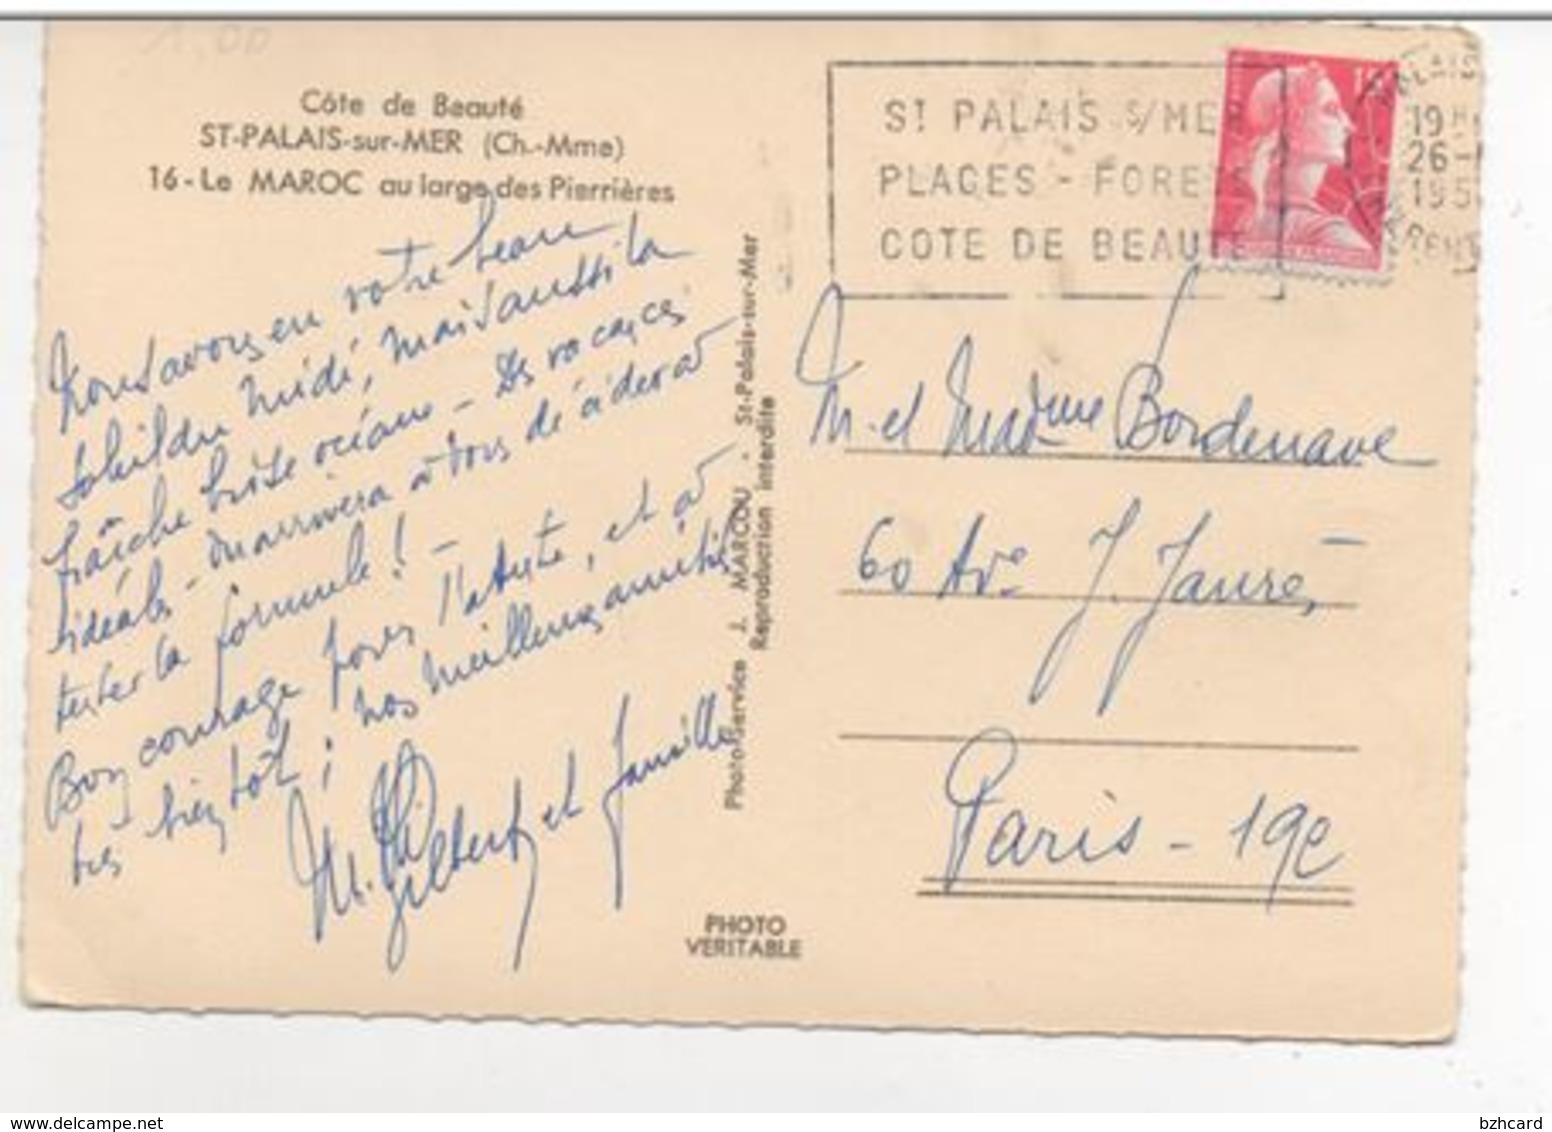 1,00
Côte de Beauté
ST-PALAIS-sur-MER (Ch.-Mme)
16 - Le MAROC au large des Pierrières
Nous avons eu votre beau
soleil du Midi, mais aussi la
fraîche brise océane - Des vacances
idéales - on arrivera à vous décider à
tenter la formule ! -
Bon courage pour l'attente, et à
très bientôt ; nos meilleures amitiés
M. Gilbert et famille
Photo-Service J. MARCOU - St-Palais-sur-Mer
Reproduction interdite
PHOTO
VERITABLE
ST PALAIS S/MER
PLAGES - FORETS
COTE DE BEAUTE
19 H
26 -
195
M. et Madame Bordenave
60 Ave J. Jaurès
Paris - 19e
bzhcard